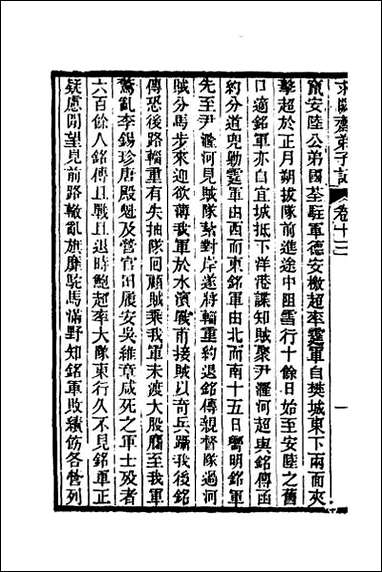 求闕齋弟子記 卷十三 一
竄安陸公弟國荃駐軍德安檄超率霆軍自樊城東下兩面夾
擊超於正月朔拔隊前進途中阻雪行十餘日始至安陸之舊
口適銘軍亦自宜城抵下洋港諜知賊聚尹漋河超與銘傳函
約分道兜勦霆軍由西而東銘軍由北而南十五日黎明銘軍
先至尹漋河見賊隊紮對岸遂將輜重約退銘傳親督隊過河
賊分馬步來迎欲薄我軍於水濱戰甫接賊以奇兵躡我後銘
傳恐後路輜重有失抽隊回顧賊乘我軍未渡大股騰至我軍
驚亂李錫珍唐殿魁及營官田履安吳維章咸死之軍士歿者
六百餘人銘傳且戰且退時鮑超率大隊東行久不見銘軍正
疑慮間望見前路轍亂旗靡駝馬滿野知銘軍敗績飭各營列